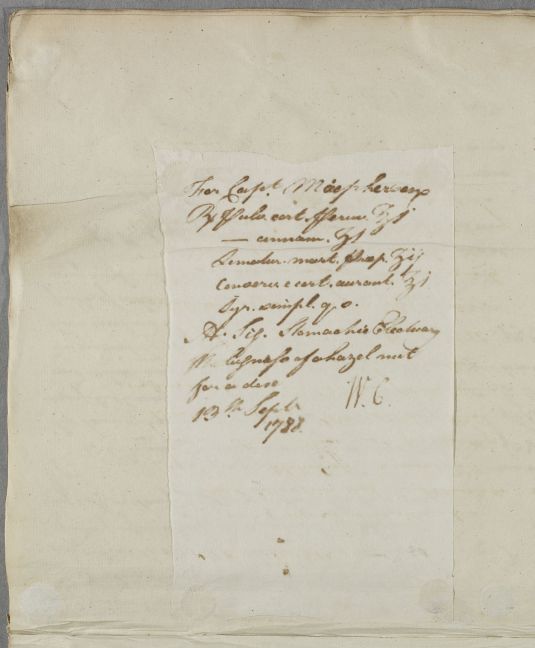 For Capt. Macpherson
℞ Pulv. cort. Peruv. ℥j
— cinnam. ʒj
Limatur. mart. ppt. ʒij
Conserv. e cort. aurant. ℥j
Syr. simpl. q.s.
M. Sig. Stomachic Electuary
The bigness of a hazel nut
for a dose
W. C.
13th Septr.
1788.